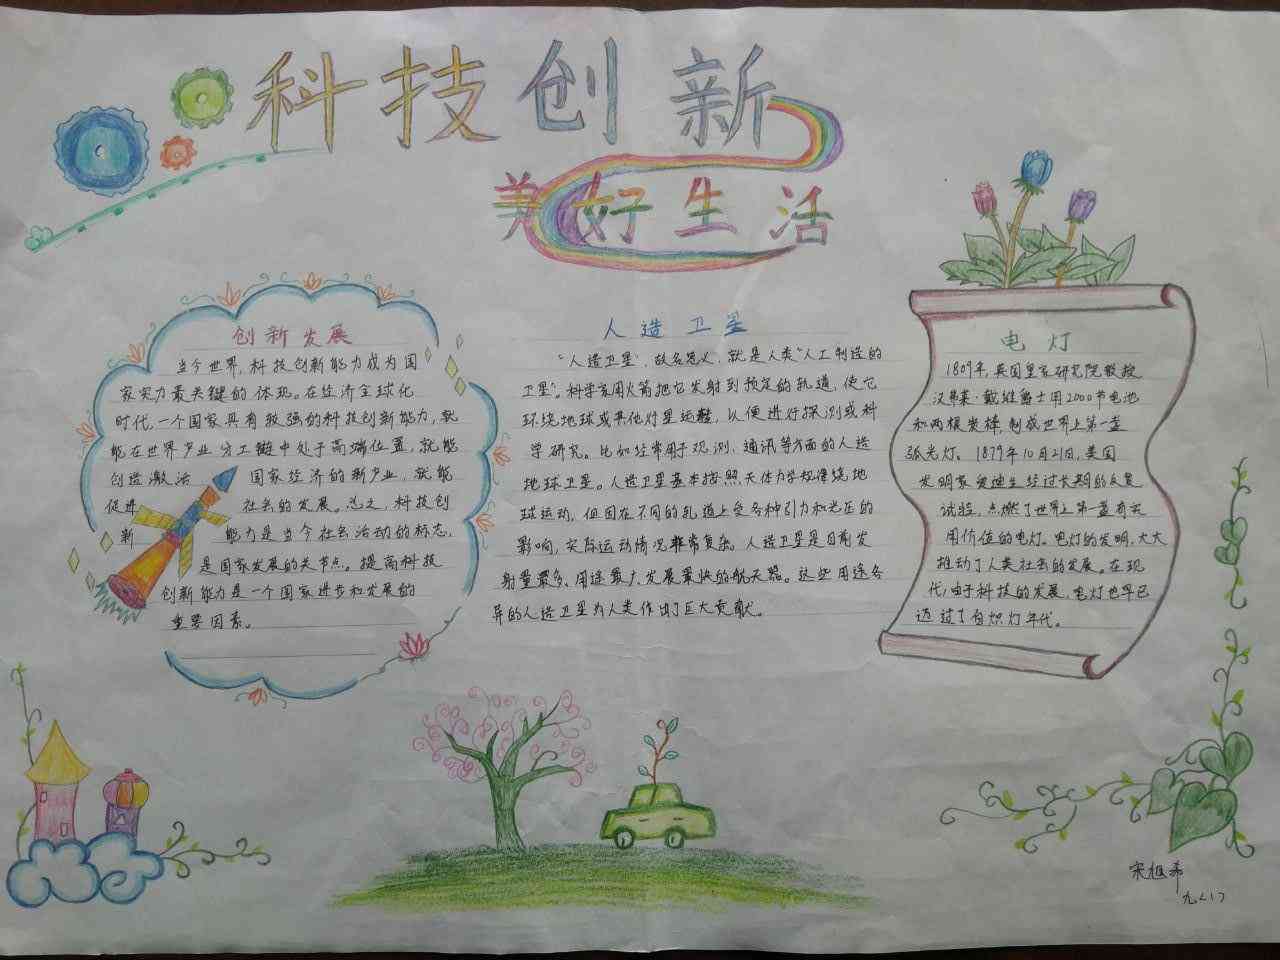 科技创新
美好生活
创新发展
当今世界,科技创新能力成为国
家实力最关键的体现。在经济全球化
时代,一个国家具有较强的科技创新能力,就
能在世界产业分工链中处于高端位置,就能
创造激活国家经济的新产业,就能
促进社会的发展。总之,科技创
新能力是当今社会活动的标志,
是国家发展的关节点。提高科技
创新能力是一个国家进步和发展的
重要因素。
人造卫星
“人造卫星”,故名思义,就是人类“人工制造的
卫星”。科学家用火箭把它发射到预定的轨道,使它
环绕地球或其他行星运转,以便进行探测或科
学研究。比如经常用于观测、通讯等方面的人造
地球卫星。人造卫星基本按照天体力学规律绕地
球运动,但因在不同的轨道上受各种引力和光压的
影响,实际运动情况非常复杂。人造卫星是目前发
射量最多、用途最广、发展最快的航天器。这些用途各
异的人造卫星为人类作出了巨大贡献。
电灯
1809年,英国皇家研究院教授
汉弗莱·戴维爵士用2000节电池
和两根炭棒,制成世界上第一盏
弧光灯。1879年10月21日,美国
发明家爱迪生经过长期的反复
试验,点燃了世界上第一盏有实
用价值的电灯。电灯的发明,大大
推动了人类社会的发展。在现
代,由于科技的发展,电灯也早已
迈过了白炽灯年代。